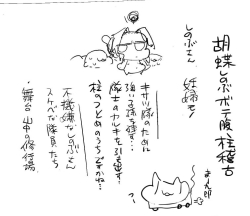 胡蝶しのぶボテ腹柱稽古
しのぶさん
妊婦モノ
キサツ隊のために
強い子孫を残…
隊士のカルキを引き出す
柱のつとめのうちですかね…
不機嫌なしのぶさん
スケベな隊員たち
・舞台 山中の修行場